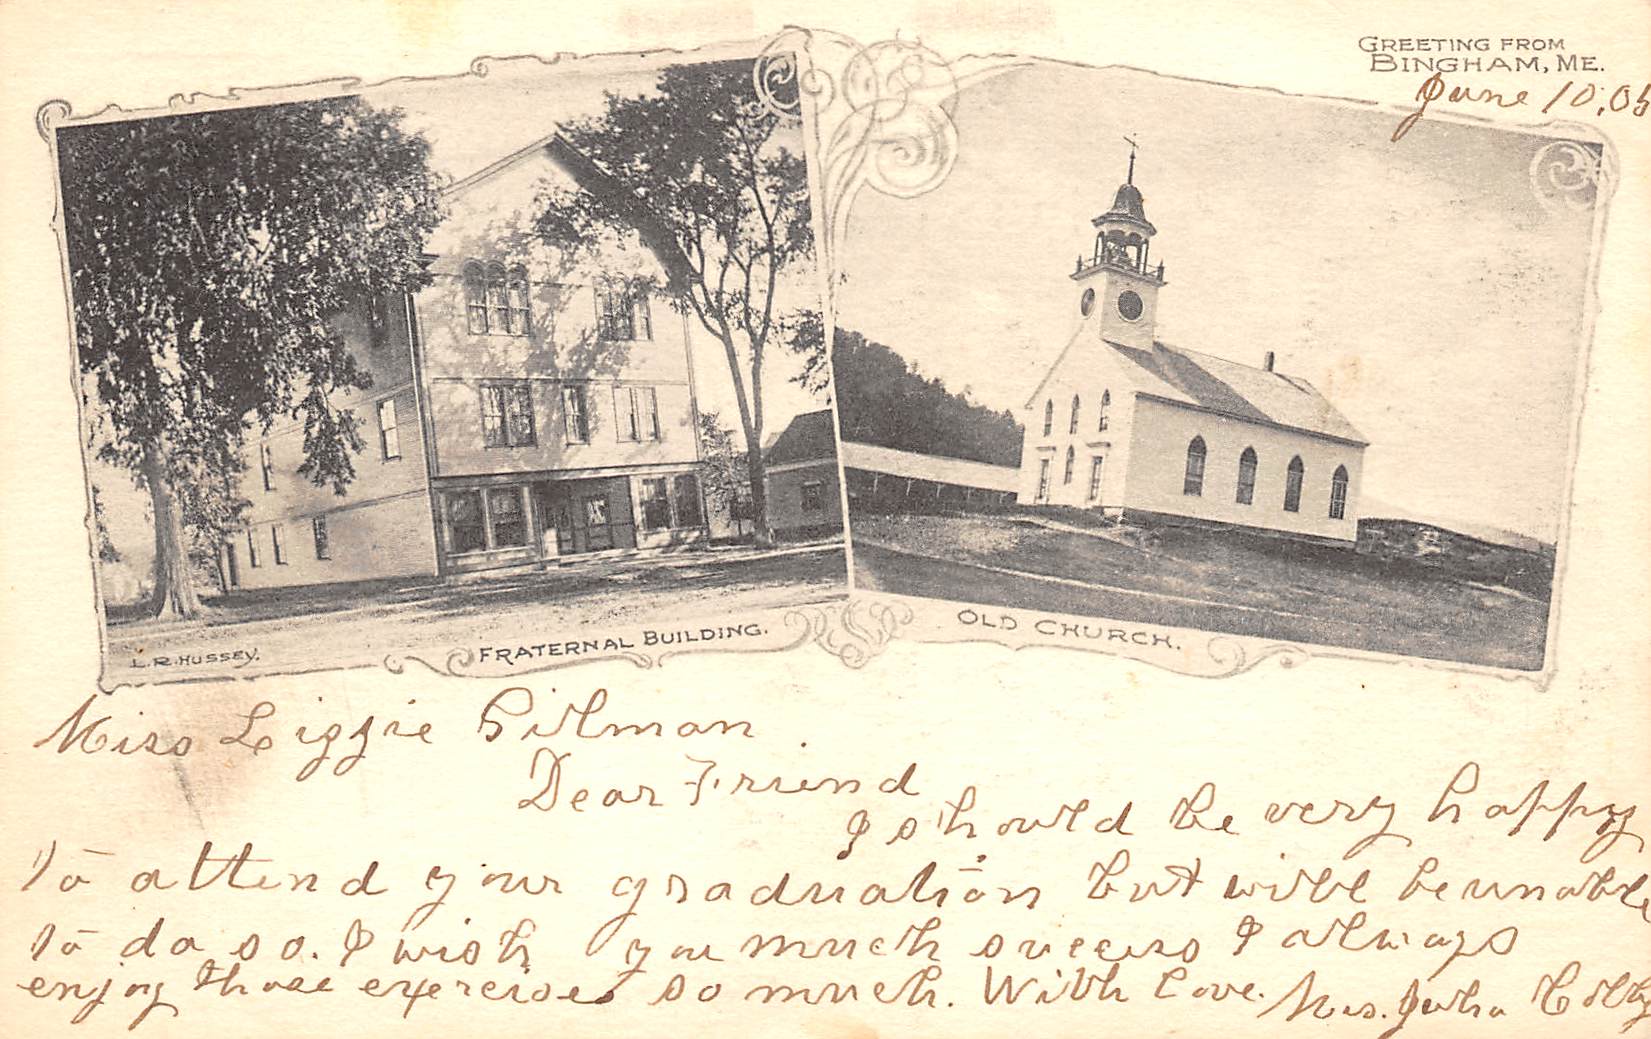 GREETING FROM
BINGHAM, ME.
June 10, 05
L.R. HUSSEY.
FRATERNAL BUILDING.
OLD CHURCH.
Miss Lizzie Gilman
Dear Friend
I should be very happy
to attend your graduation but will be unable
to do so. I wish you much success I always
enjoy those exercises so much. With love. Mrs. Julia Colby